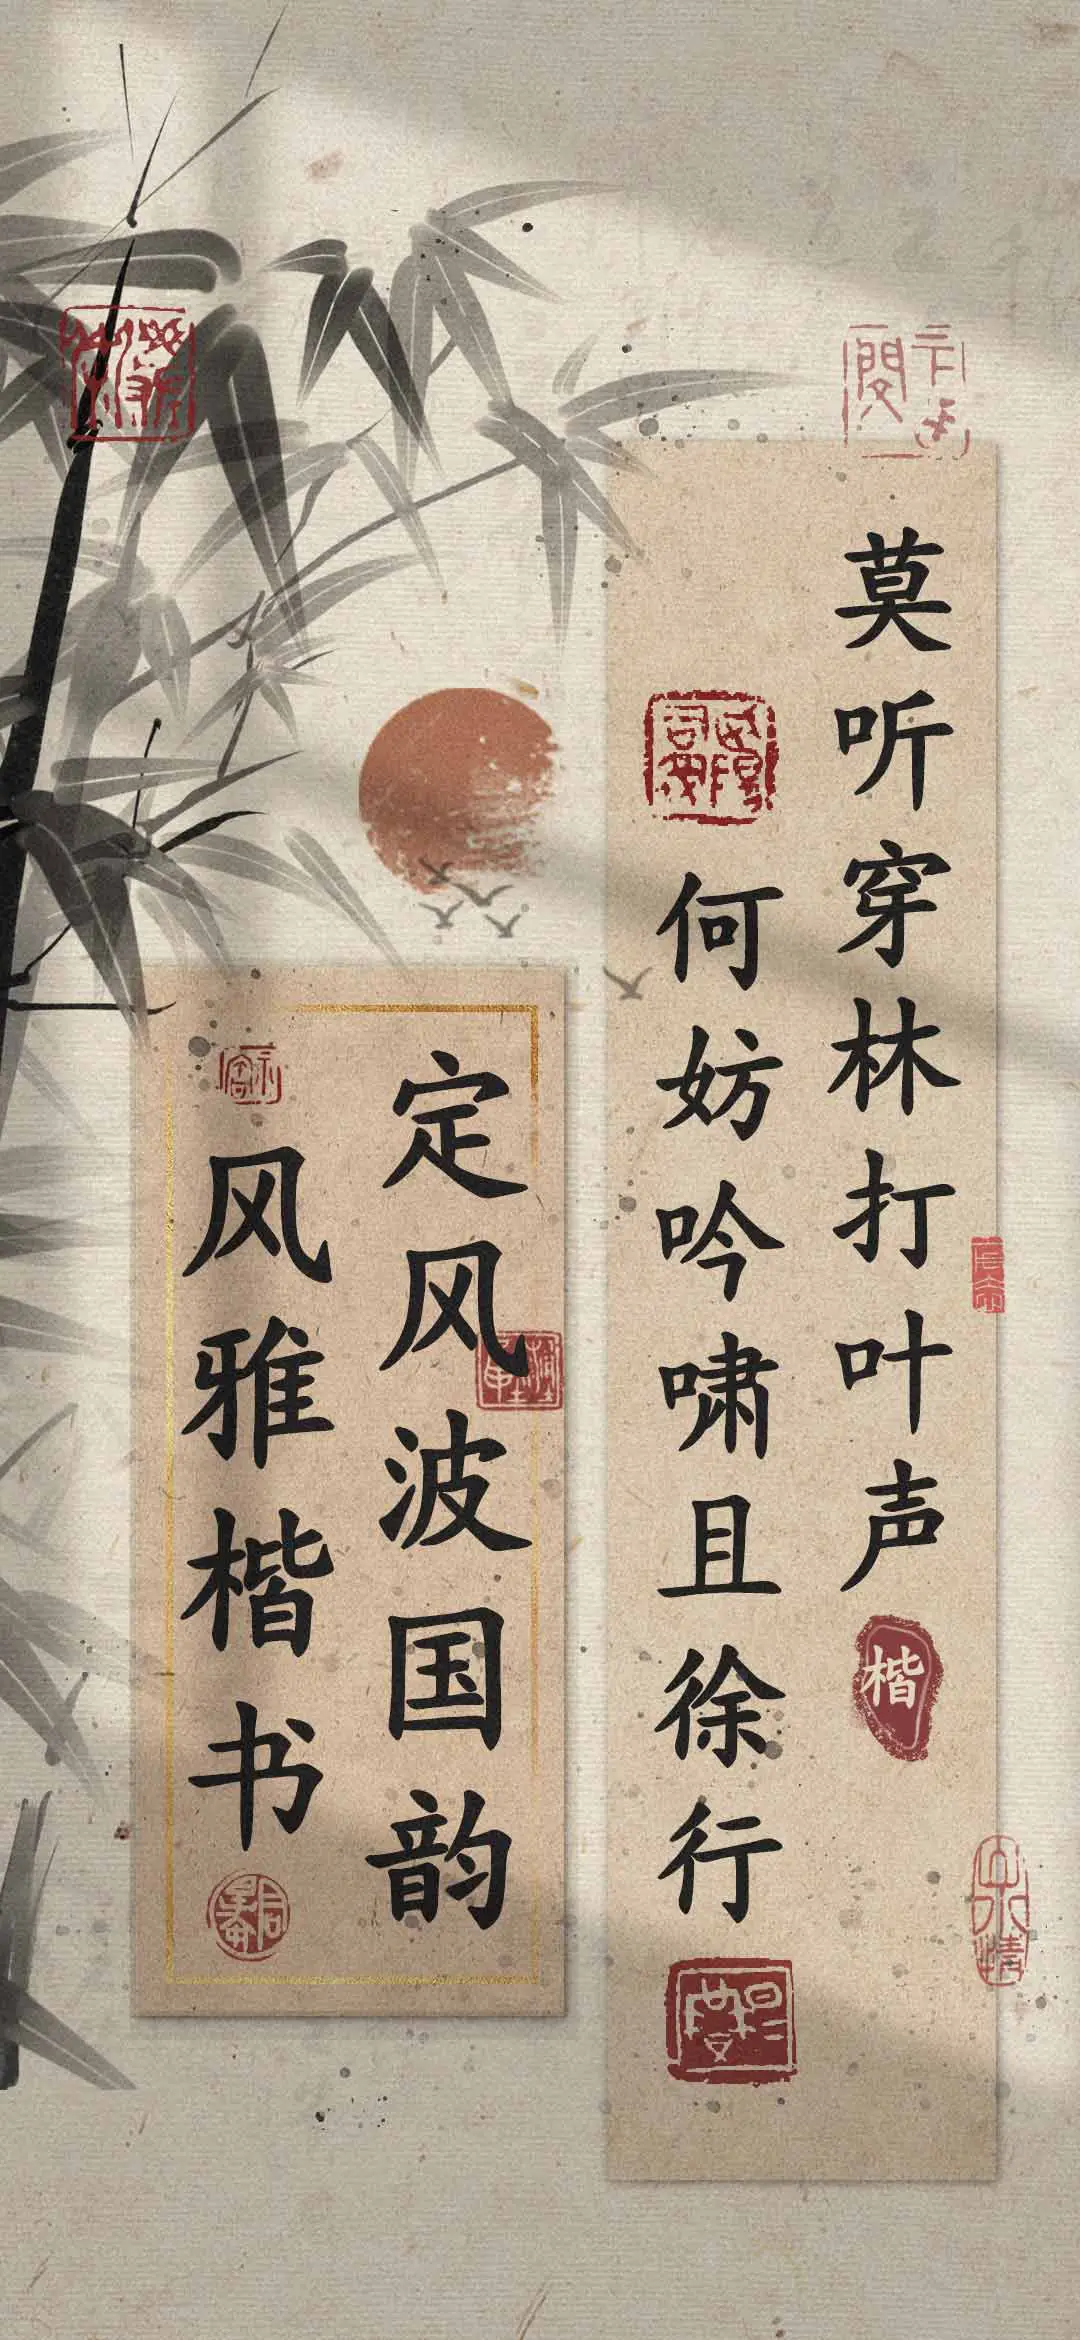 莫听穿林打叶声
楷
何妨吟啸且徐行
定风波国韵
风雅楷书